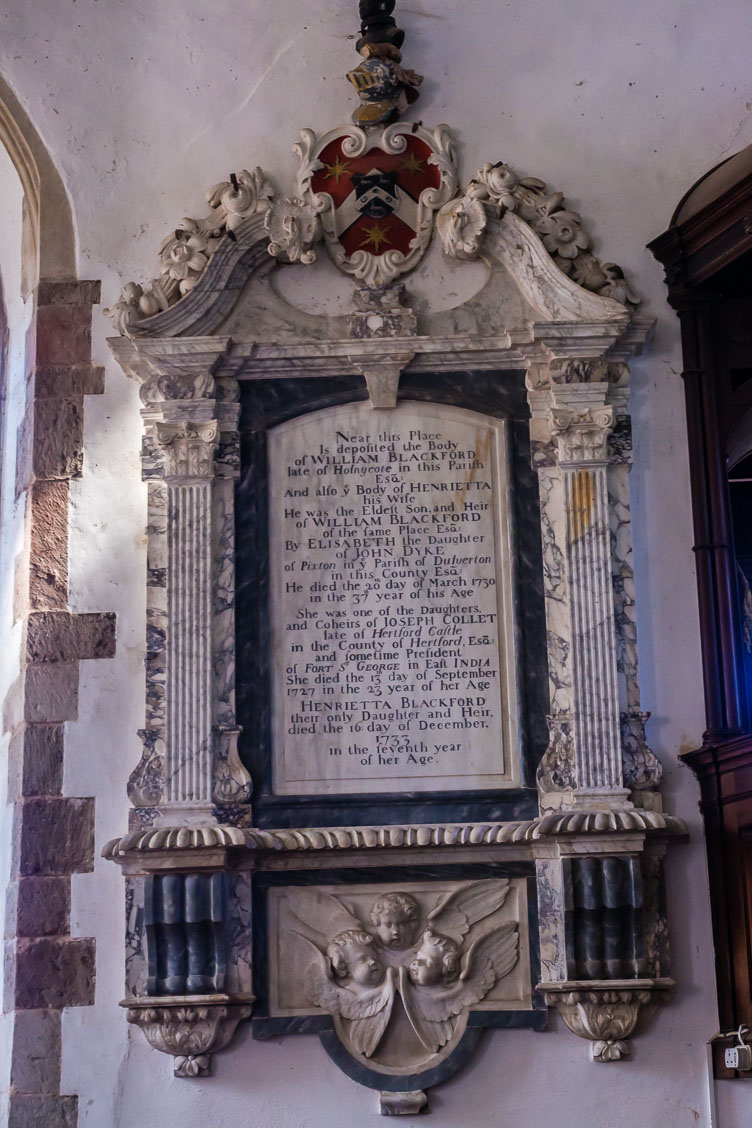 Near this Place
Is depoſited the Body
of WILLIAM BLACKFORD
late of Holnycote in this Pariſh
Esq:
And alſo ẏ Body of HENRIETTA
his Wife
He was the Eldeſt Son, and Heir
of WILLIAM BLACKFORD
of the ſame Place Esq:
By ELISABETH the Daughter
of JOHN DYKE
of Pixton in ẏ Pariſh of Dulverton
in this County Esq:
He died the 20 day of March 1730
in the 37 year of his Age
She was one of the Daughters,
and Coheirs of JOSEPH COLLET
late of Hertford Caſtle
in the County of Hertford, Esq:
and ſometime Preſident
of FORT Sᵗ GEORGE in Eaſt INDIA
She died the 13 day of September
1727 in the 23 year of her Age
HENRIETTA BLACKFORD
their only Daughter and Heir,
died the 16 day of December,
1733
in the ſeventh year
of her Age.